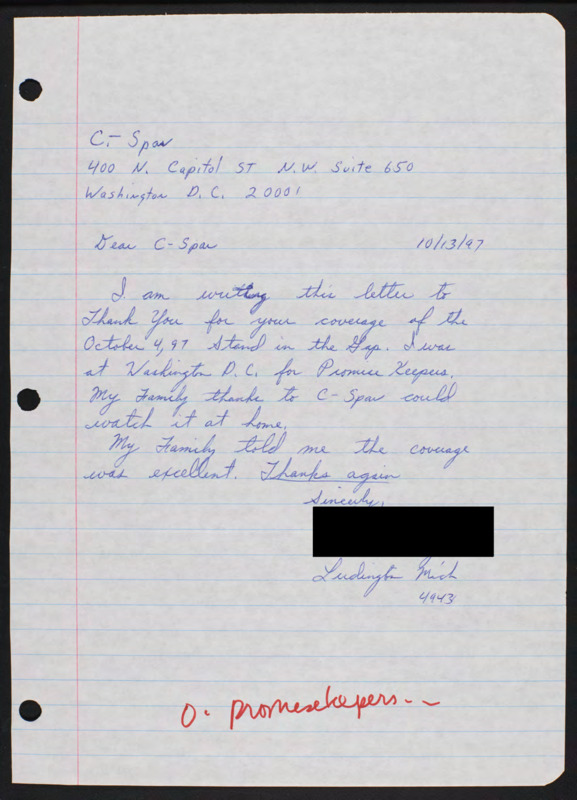 C.- Span
400 N. Capitol ST N.W. Suite 650
Washington D.C. 20001
Dear C-Span 10/13/97
I am writing this letter to
Thank You for your coverage of the
October 4, 97 Stand in the Gap. I was
at Washington D.C. for Promise Keepers.
My Family thanks to C-Span could
watch it at home.
My Family told me the coverage
was excellent. Thanks again
Sincerely,
Ludington Mich
4943
O. promisekeepers--